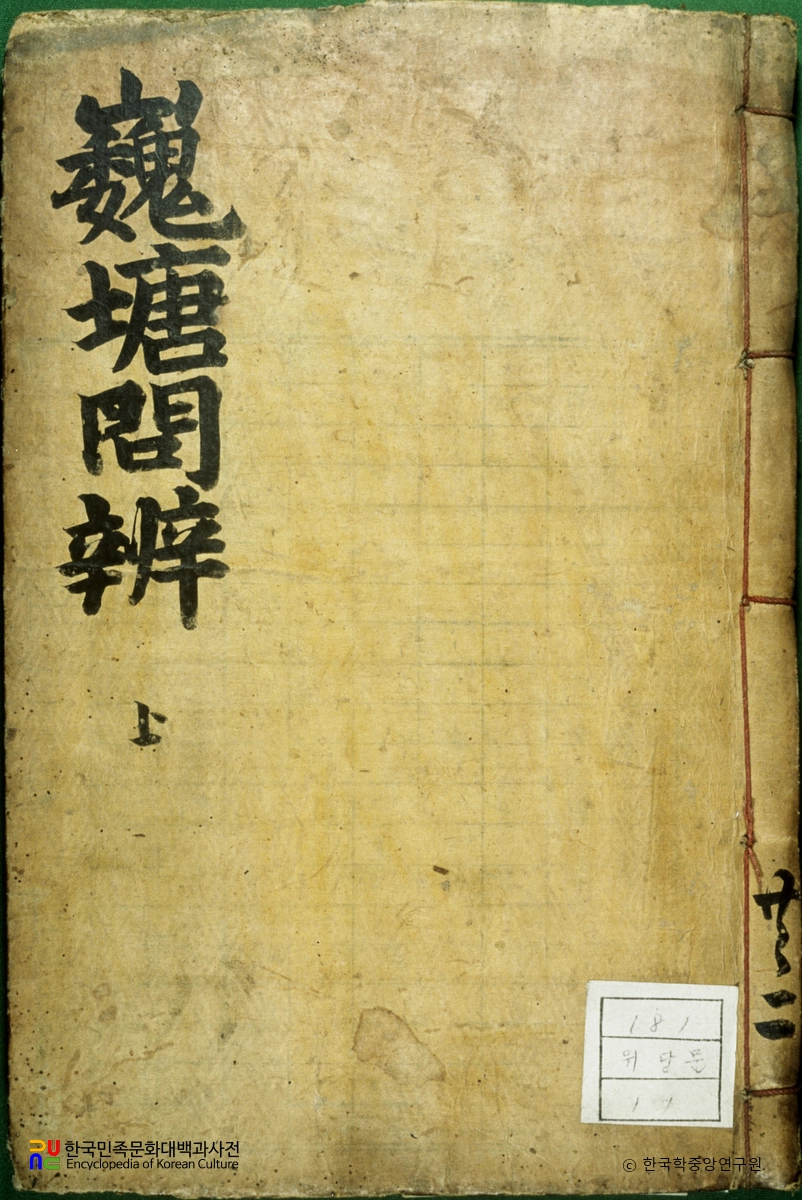 巍塘問辨
上
共二
181
위당문
한국민족문화대백과사전
Encyclopedia of Korean Culture
© 한국학중앙연구원